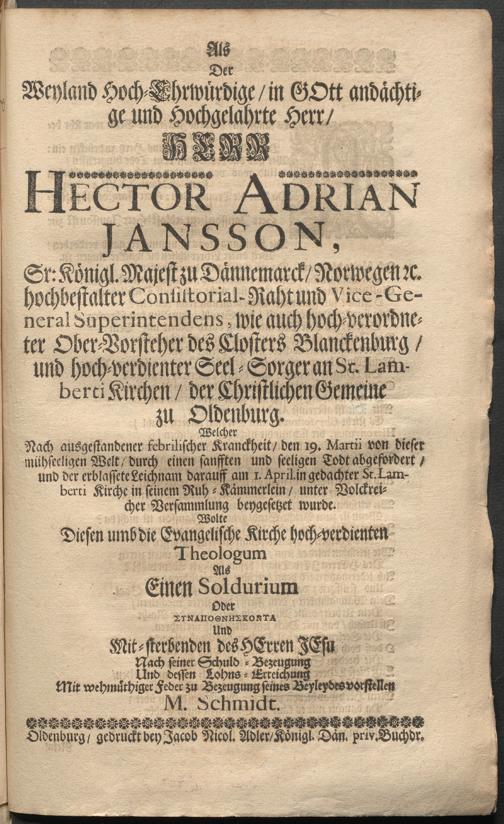 Als
Der
Weyland Hoch-Ehrwürdige / in GOtt andächti-
ge und Hochgelahrte Herr /
HERR
HECTOR ADRIAN
JANSSON,
Sr: Königl. Majest zu Dännemarck / Norwegen ꝛc.
hochbestalter Consistorial-Raht und Vice-Ge-
neral Superintendens, wie auch hoch-verordne-
ter Ober-Vorsteher des Closters Blanckenburg /
und hoch-verdienter Seel-Sorger an St. Lam-
berti Kirchen / der Christlichen Gemeine
zu Oldenburg.
Welcher
Nach ausgestandener febrilischer Kranckheit / den 19. Martii von dieser
mühseeligen Welt / durch einen sanfften und seeligen Todt abgefordert /
und der erblassete Leichnam darauff am 1. April. in gedachter St. Lam-
berti Kirche in seinem Ruh-Kämmerlein / unter Volckrei-
cher Versammlung beygesetzet wurde.
Wolte
Diesen umb die Evangelische Kirche hoch-verdienten
Theologum
Als
Einen Soldurium
Oder
ΣΥΝΑΠΟΘΝΗΣΚΟΝΤΑ
Und
Mit-sterbenden des HErren JEsu
Nach seiner Schuld-Bezeugung
Und dessen Lohns-Erreichung
Mit wehmüthiger Feder zu Bezeugung seines Beyleydes vorstellen
M. Schmidt.
Oldenburg / gedruckt bey Jacob Nicol. Adler / Königl. Dän. priv. Buchdr.